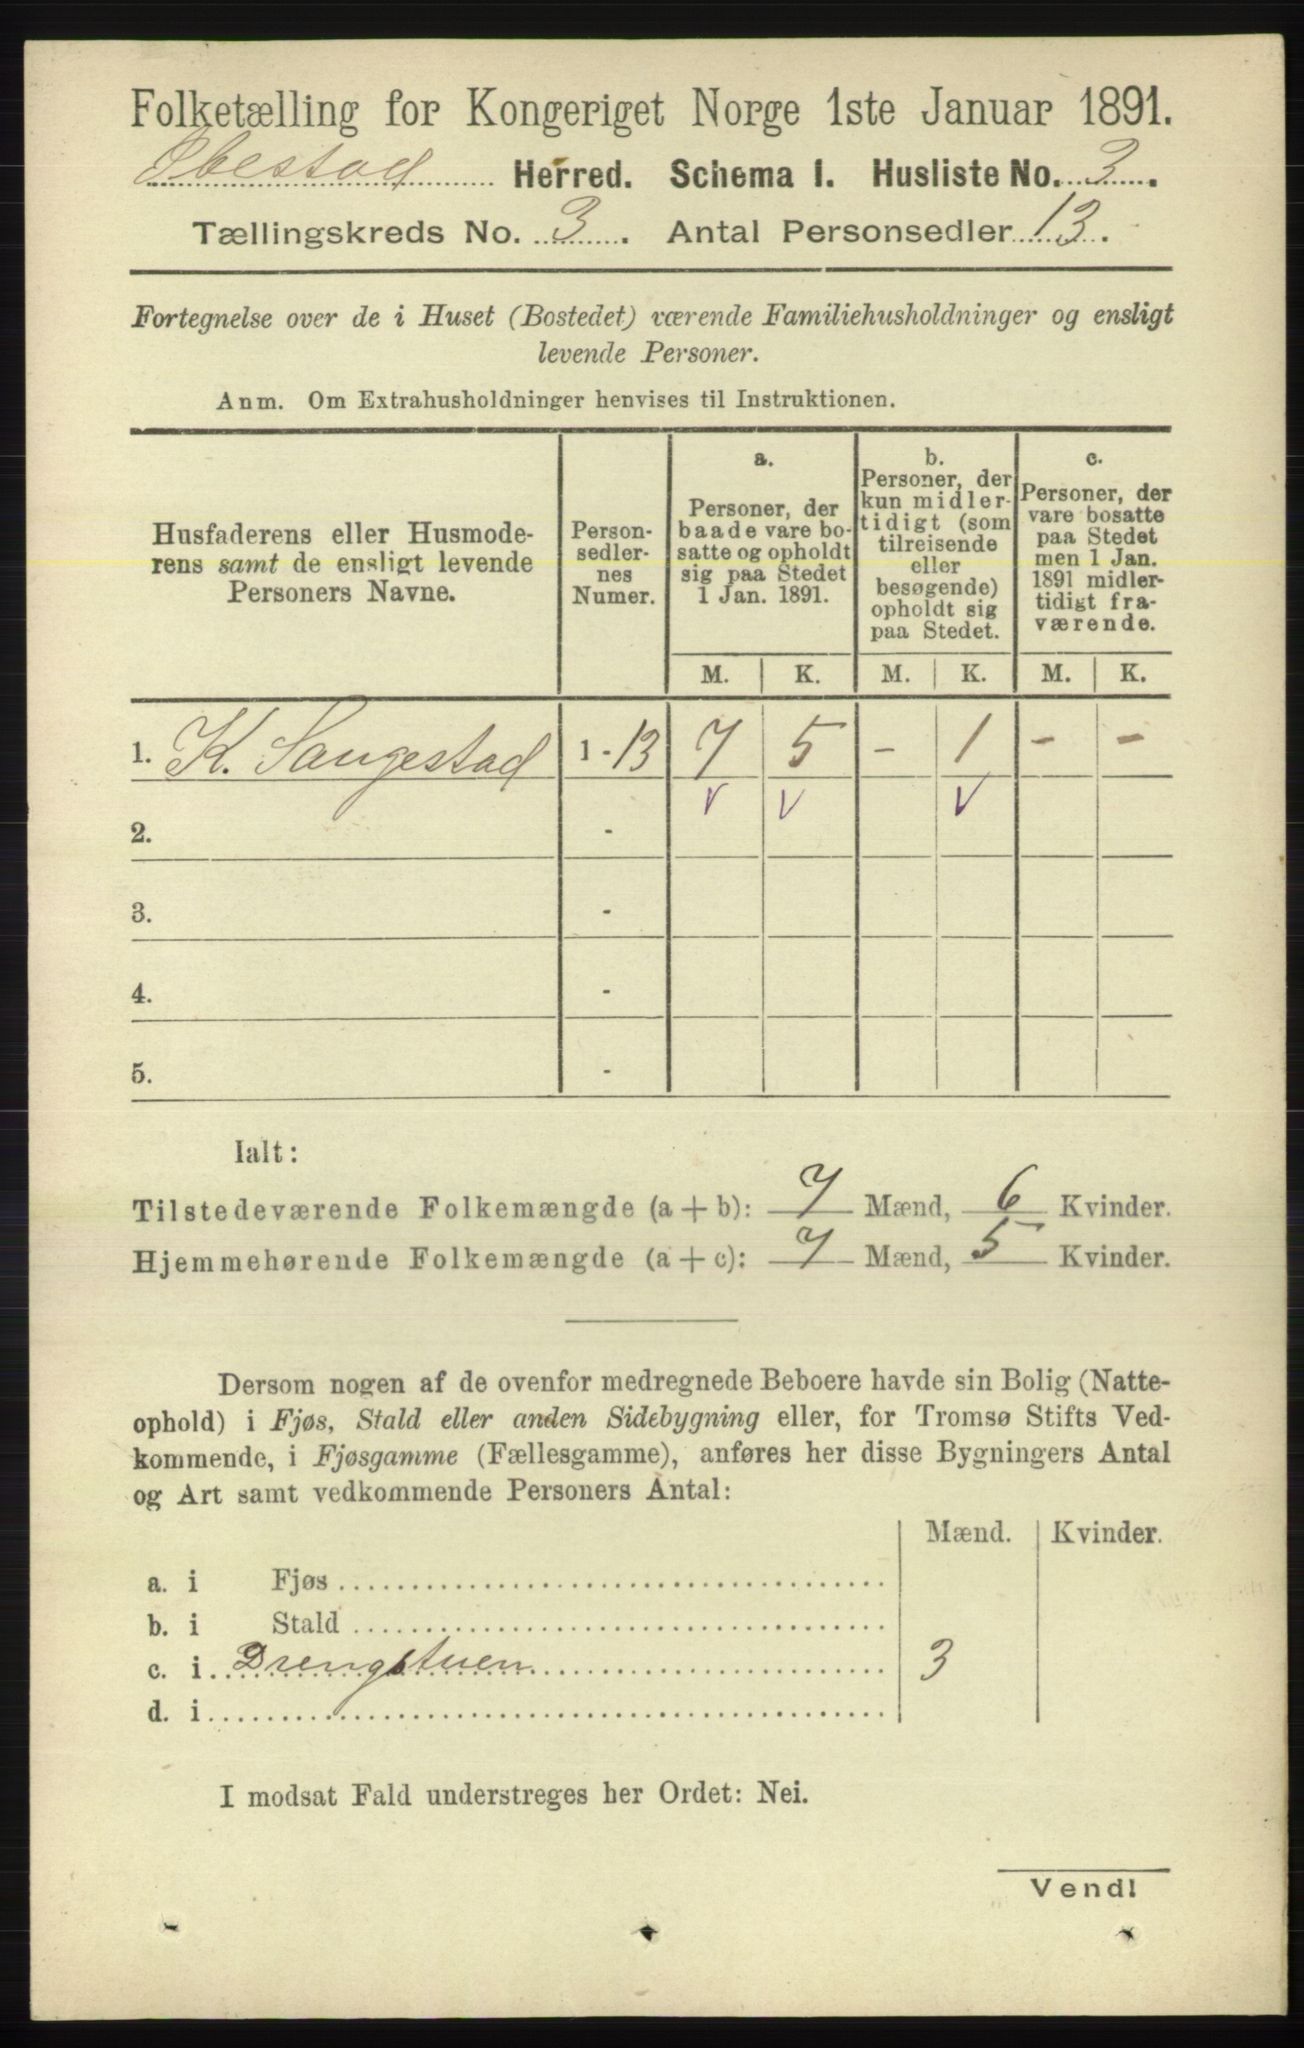 Folketælling for Kongeriget Norge 1ste Januar 1891.
Ibestad Herred. Schema I. Husliste No. 3.
Tællingskreds No. 3. Antal Personsedler 13.
Fortegnelse over de i Huset (Bostedet) værende Familiehusholdninger og ensligt
levende Personer.
Anm. Om Extrahusholdninger henvises til Instruktionen.
Husfaderens eller Husmode-
rens samt de ensligt levende
Personers Navne.
Person-
sedler-
nes
Numer.
a.
Personer, der
baade vare bo-
satte og opholdt
sig paa Stedet
1 Jan. 1891.
b.
Personer, der
kun midler-
tidigt (som
tilreisende
eller
besøgende)
opholdt sig
paa Stedet.
c.
Personer, der
vare bosatte
paa Stedet
men 1 Jan.
1891 midler-
tidigt fra-
værende.
M. K. M. K. M. K.
1. K. Saugestad 1 - 13 7 5 - 1 - -
v v v
2. -
3. -
4. -
5. -
Ialt:
Tilstedeværende Folkemængde (a + b): 7 Mænd, 6 Kvinder.
Hjemmehørende Folkemængde (a + c): 7 Mænd, 5 Kvinder.
Dersom nogen af de ovenfor medregnede Beboere havde sin Bolig (Natte-
ophold) i Fjøs, Stald eller anden Sidebygning eller, for Tromsø Stifts Ved-
kommende, i Fjøsgamme (Fællesgamme), anføres her disse Bygningers Antal
og Art samt vedkommende Personers Antal:
Mænd. Kvinder.
a. i Fjøs
b. i Stald
c. i Drengstuen 3
d. i
I modsat Fald understreges her Ordet: Nei.
Vend!